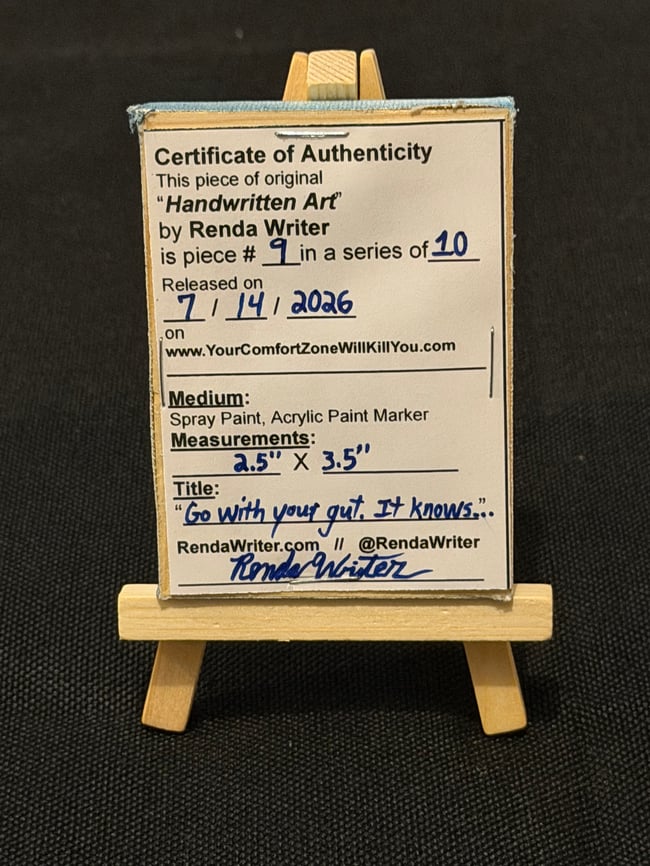 Certificate of Authenticity
This piece of original
"Handwritten Art"
by Renda Writer
is piece # 9 in a series of 10
Released on
7 / 14 / 2026
on
www.YourComfortZoneWillKillYou.com
Medium:
Spray Paint, Acrylic Paint Marker
Measurements:
2.5" X 3.5"
Title:
"Go with your gut. It knows..."
RendaWriter.com // @RendaWriter
Renda Writer